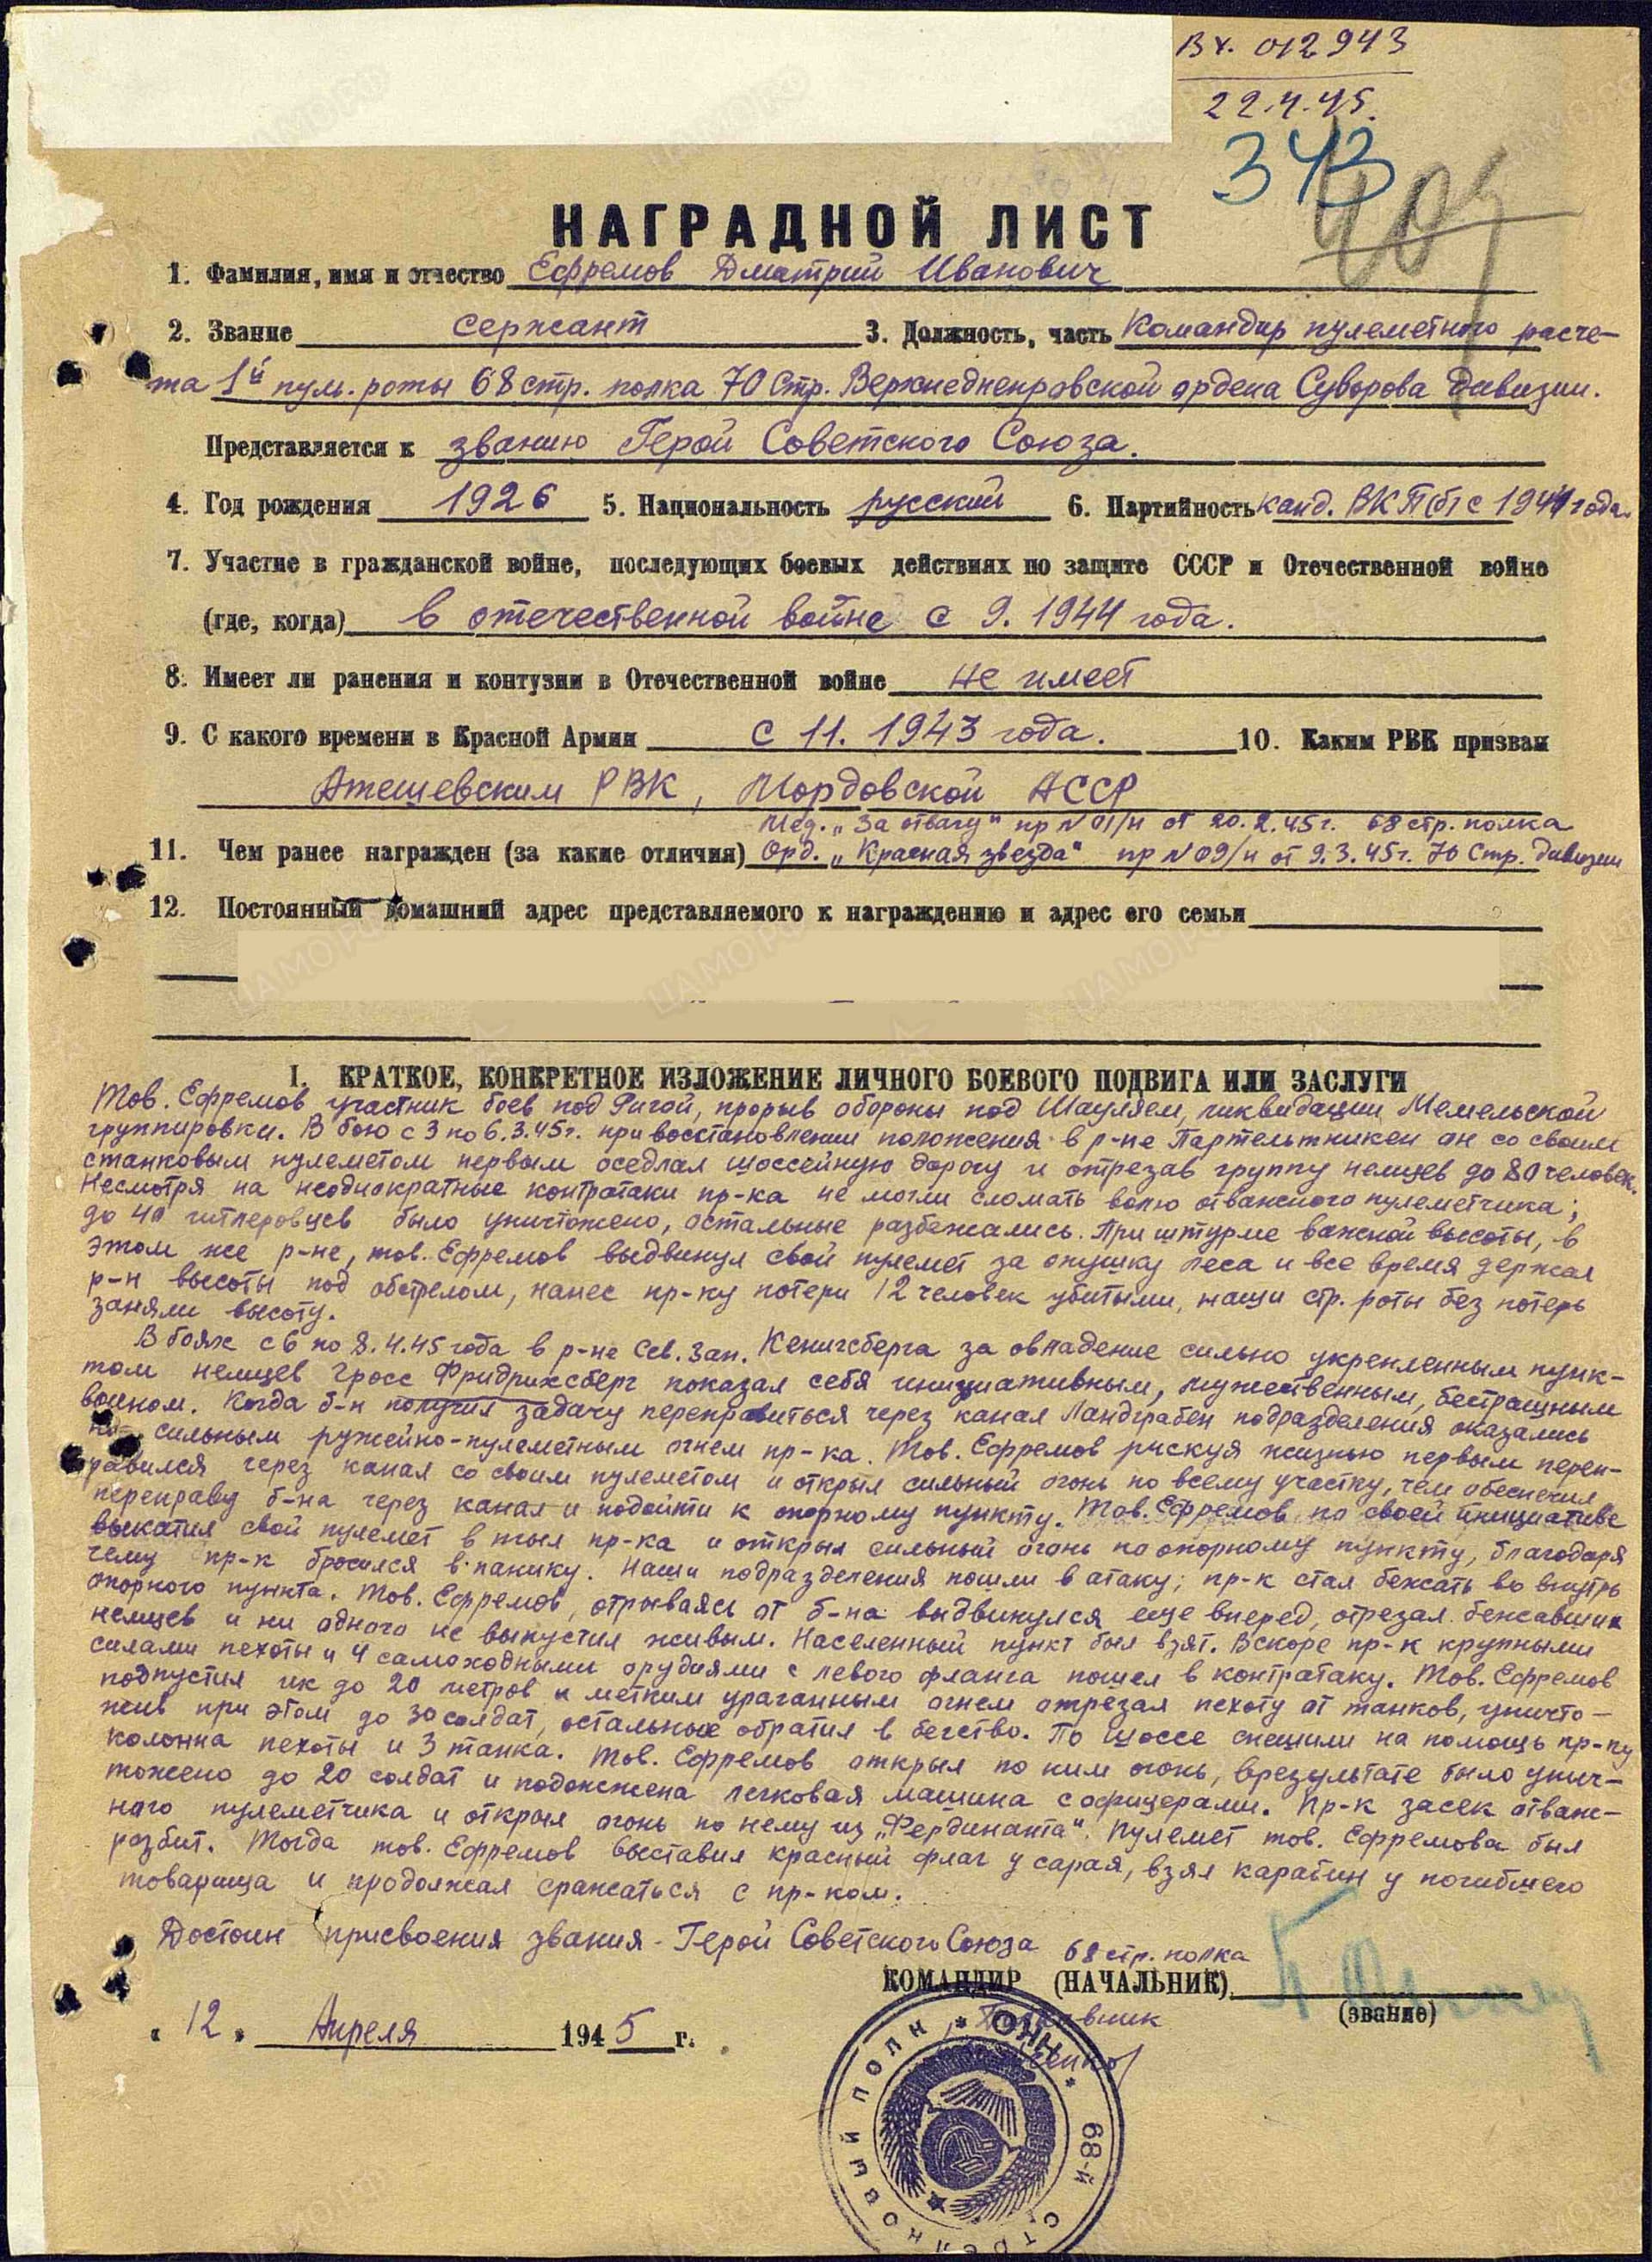 Вх. 012943
22.4.45.
343
НАГРАДНОЙ ЛИСТ
1. Фамилия, имя и отчество Ефремов Дмитрий Иванович
2. Звание сержант 3. Должность, часть Командир пулеметного расче-
та 1й пул. роты 68 стр. полка 70 Стр. Верхнеднепровской ордена Суворова дивизии.
Представляется к званию Герой Советского Союза.
4. Год рождения 1926 5. Национальность русский 6. Партийность канд. ВКП(б) с 1944 года.
7. Участие в гражданской войне, последующих боевых действиях по защите СССР и Отечественной войне
(где, когда) в отечественной войне с 9. 1944 года.
8. Имеет ли ранения и контузии в Отечественной войне Не имеет
9. С какого времени в Красной Армии с 11. 1943 года. 10. Каким РВК призван
Атешевским РВК, Мордовской АССР
Мед. „За отвагу" пр N 01/н от 20.2.45г. 68 стр. полка
11. Чем ранее награжден (за какие отличия) Орд. „Красная звезда" пр N 09/н от 9.3.45г. 70 Стр. дивизии
12. Постоянный домашний адрес представляемого к награждению и адрес его семьи
I. КРАТКОЕ, КОНКРЕТНОЕ ИЗЛОЖЕНИЕ ЛИЧНОГО БОЕВОГО ПОДВИГА ИЛИ ЗАСЛУГИ
Тов. Ефремов участник боев под Ригой, прорыв обороны под Шауляем, ликвидации Мемельской
группировки. В бою с 3 по 6.3.45г. при восстановлении положения в р-не Партельтникен он со своим
станковым пулеметом первым оседлал шоссейную дорогу и отрезав группу немцев до 80 человек.
Несмотря на неоднократные контратаки пр-ка не могли сломать волю отважного пулеметчика;
до 40 гитлеровцев было уничтожено, остальные разбежались. При штурме важной высоты, в
этом же р-не, тов. Ефремов выдвинул свой пулемет за опушку леса и все время держал
р-н высоты под обстрелом, нанес пр-ку потери 12 человек убитыми, наши стр. роты без потерь
заняли высоту.
В боях с 6 по 8.4.45 года в р-не Сев. Зап. Кенигсберга за овладение сильно укрепленным пунк-
том немцев Гросс Фридрихсберг показал себя инициативным, мужественным, бестрашным
воином. Когда б-н получил задачу переправиться через канал Ландграбен подразделения оказались
под сильным ружейно-пулеметным огнем пр-ка. Тов. Ефремов рискуя жизнью первым переп-
равился через канал со своим пулеметом и открыл сильный огонь по всему участку, чем обеспечил
переправу б-на через канал и подойти к опорному пункту. Тов. Ефремов по своей инициативе
выкатил свой пулемет в тыл пр-ка и открыл сильный огонь по опорному пункту, благодаря
чему пр-к бросился в панику. Наши подразделения пошли в атаку; пр-к стал бежать во внутрь
опорного пункта. Тов. Ефремов, отрываясь от б-на выдвинулся еще вперед, отрезал бежавших
немцев и ни одного не выпустил живым. Населенный пункт был взят. Вскоре пр-к крупными
силами пехоты и 4 самоходными орудиями с левого фланга пошел в контратаку. Тов. Ефремов
подпустил их до 20 метров и метким ураганным огнем отрезал пехоту от танков, уничто-
жив при этом до 30 солдат, остальные обратил в бегство. По шоссе спешили на помощь пр-ку
колонна пехоты и 3 танка. Тов. Ефремов открыл по ним огонь, врезультате было унич-
тожено до 20 солдат и подожжена легковая машина с офицерами. Пр-к засек отваж-
ного пулеметчика и открыл огонь по нему из „Фердинанта". Пулемет тов. Ефремова был
разбит. Тогда тов. Ефремов выставил красный флаг у сарая, взял карабин у погибшего
товарища и продолжал сражаться с пр-ком.
Достоин присвоения звания - Герой Советского Союза
68 стр. полка
КОМАНДИР (НАЧАЛЬНИК)
(звание)
„12" Апреля 1945 г.
68-й СТРЕЛКОВЫЙ ПОЛК * НКО *